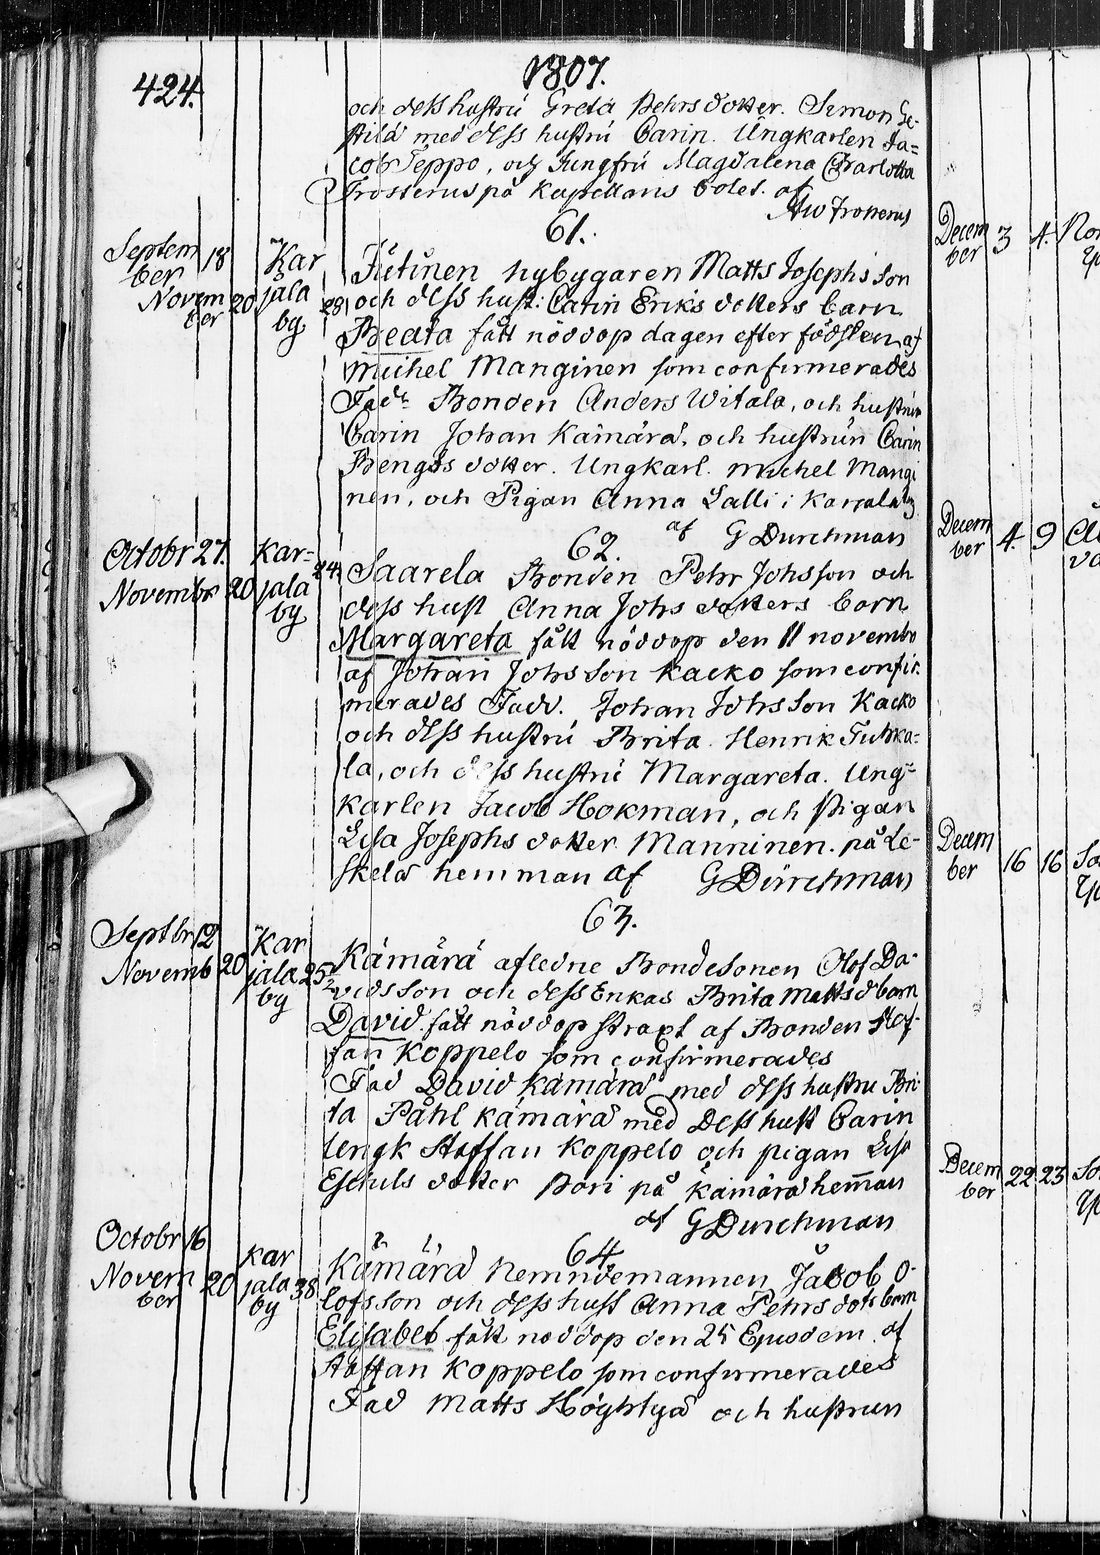 424.
1807.
och dess hustru Greta Pehrs dotter. Simon Ge-
stilä med dess hustru Carin. Ungkarlen Ja=
cob Teppo, och Jungfru Magdalena Charlotta
Frosterus på Kapellans bolet. af
And Frosterus
61.
Septem 18
ber
Novem 20
ber
Kar
jala
by
28
nybygaren Matts Josephs son
och dess hust: Carin Eriks dotters barn
Beata fått nöddop dagen efter födslen af
Michel Manginen som confirmerades
Fadr Bonden Anders Witala, och hustrun
Carin Johan Kämärä, och hustrun Carin
Bengts dotter. Ungkarl. Michel Mangi
nen, och Pigan Anna Lalli i Karjala by
af G Durchman
62.
Octobr 27.
Novembr 20
Kar=
jala
by
24
Saarela Bonden Pehr Johsson och
dess hust Anna Johs dotters barn
Margareta fått nöddop den 11 novembr
af Johan Johsson Kacko som confir
merades Fadd. Johan Johsson Kacko
och dess hustru Brita. Henrik Tuhka=
la, och dess hustru Margareta. Ung=
karlen Jacob Hokman, och Pigan
Lisa Josephs dotter Manninen. på Le-
skelä hemman af G Durchman
63.
Septbr 12
Novemb 20
Kar
jala
by
25 1/2
Kämärä afledne Bondesonen Olof Da-
vids son och dess Enkas Brita Matts d barn
David fått nöddop straxt af Bonden Staf-
fan Koppelo som confirmerades
Fad David Kämärä med dess hustru Bri
ta Påhl Kämärä med Dess hust Carin
Ungk Staffan Koppelo och pigan Lisa
Eschils dotter Pori på Kämärä hemman
af G Durchman
64.
Octobr 16
Novem 20
ber
Kar
jala
by
38
Kämärä Nemndemannen Jacob O-
lofsson och dess hust Anna Pehrs dotr barn
Elisabet fått nöddop den 25 Ejusdem af
Staffan Koppelo som confirmerades
Fad Matts Höyhtyä och hustrun
Decem
ber
3
4.
Decem
ber
4.
9
Decem
ber
16
16
Decem
ber
22
23